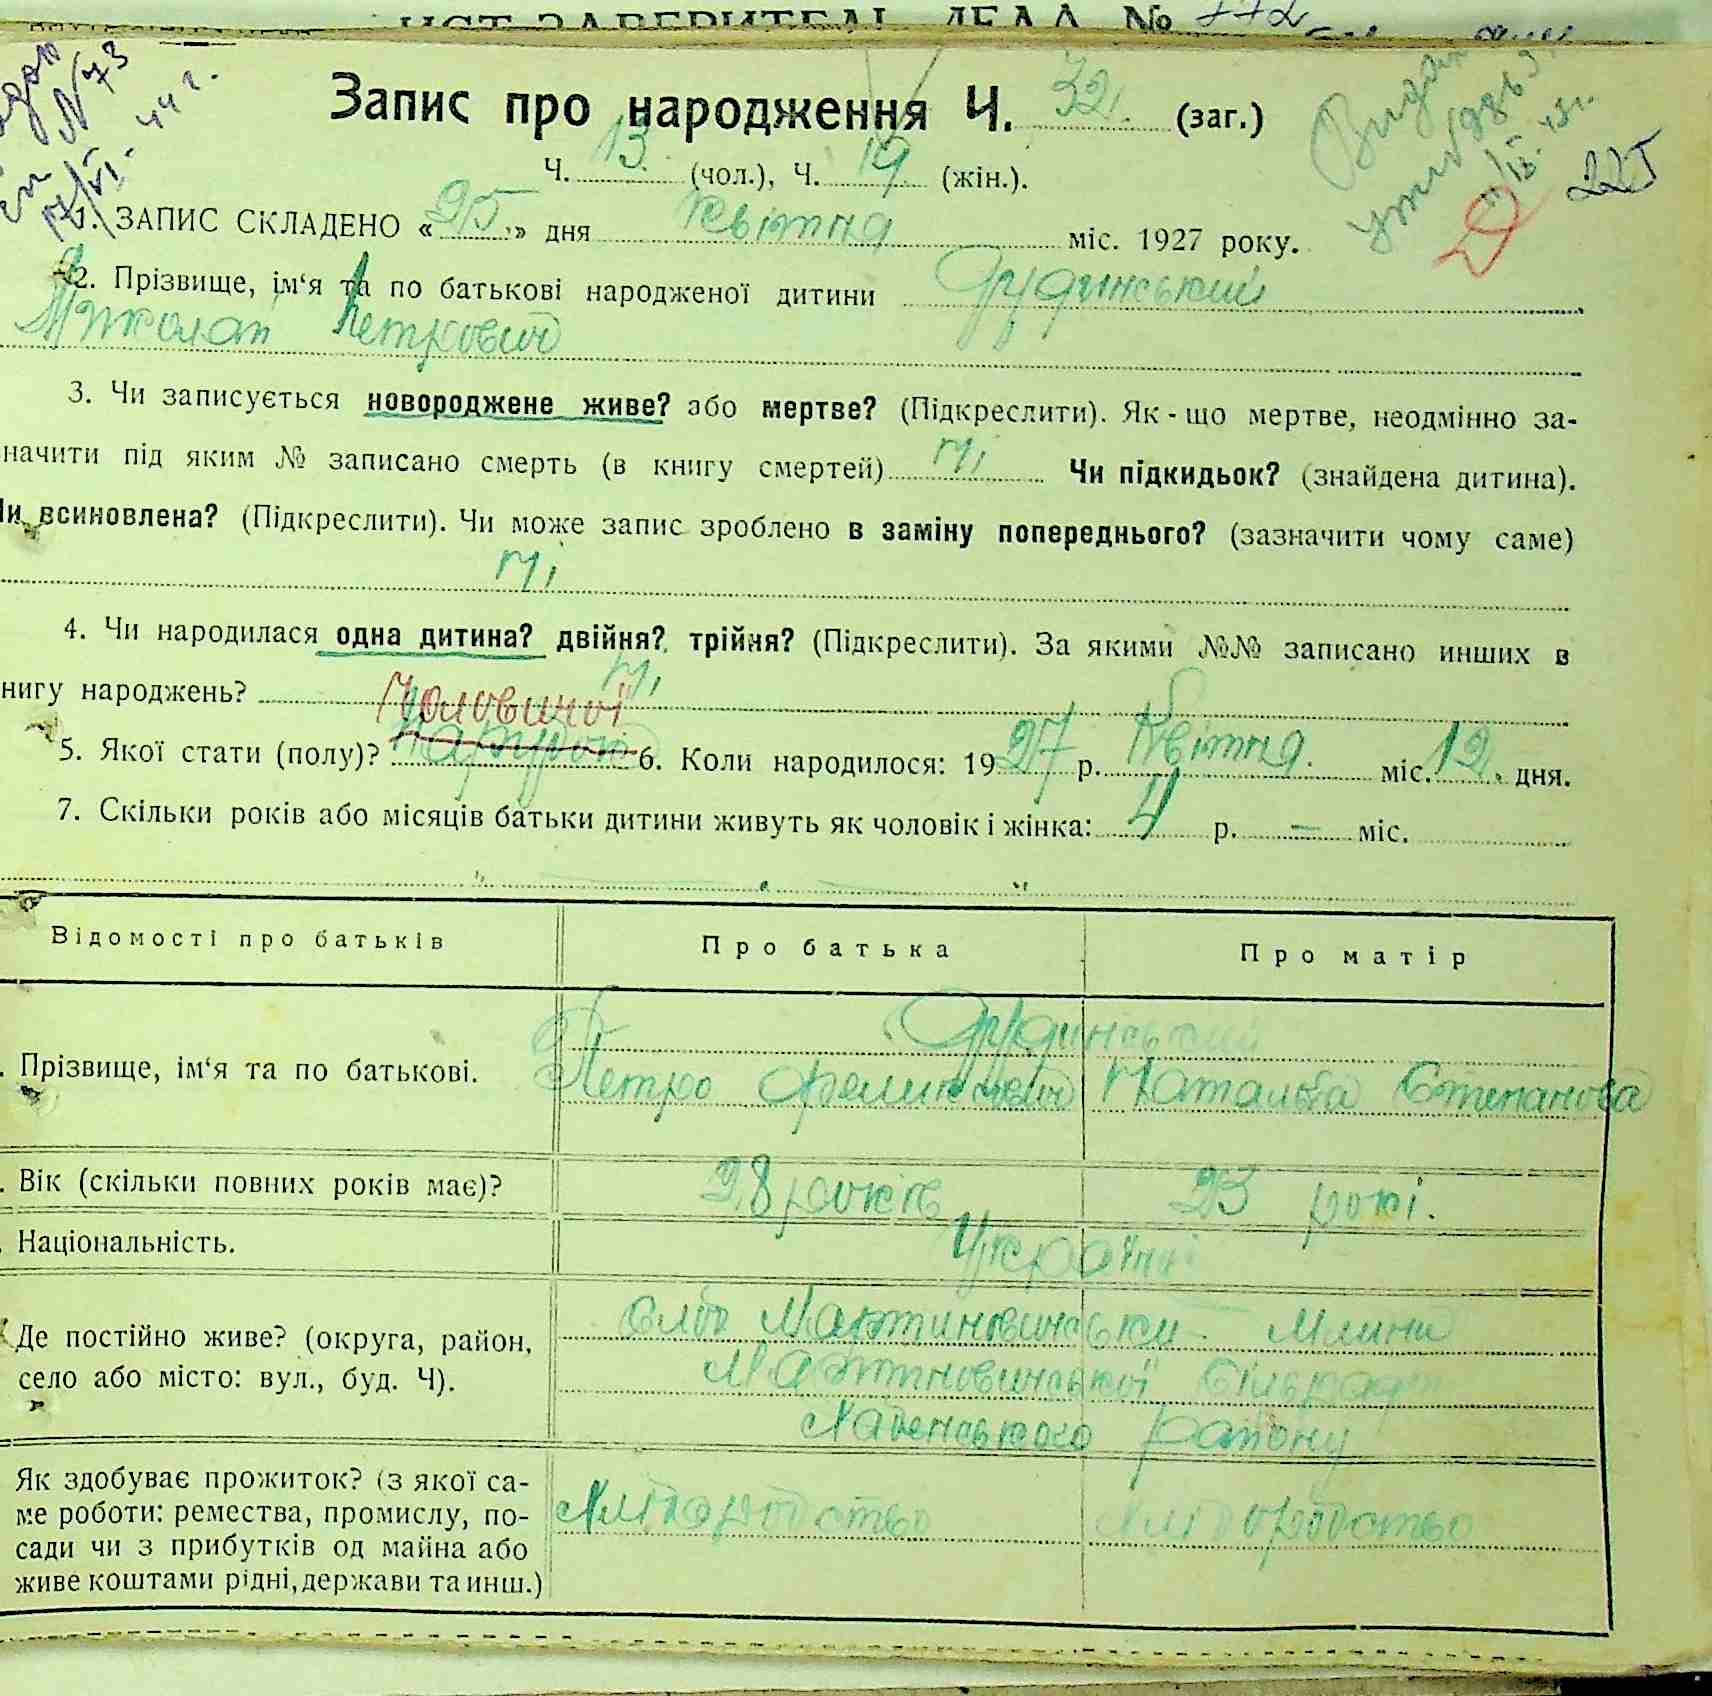 ИСТ-ЗАВЕРИТЕЛЬ ДЕЛА № 772
Запис про народження Ч. 32 (заг.)
Ч. 13 (чол.), Ч. 19 (жін.).
Видан
1. ЗАПИС СКЛАДЕНО «25» дня Квітня міс. 1927 року.
2. Прізвище, ім‘я та по батькові народженої дитини
Миколай Петрович
3. Чи записується новороджене живе? або мертве? (Підкреслити). Як-що мертве, неодмінно за-
начити під яким № записано смерть (в книгу смертей) Ні Чи підкидьок? (знайдена дитина).
Чи всиновлена? (Підкреслити). Чи може запис зроблено в заміну попереднього? (зазначити чому саме)
Ні
4. Чи народилася одна дитина? двійня? трійня? (Підкреслити). За якими №№ записано инших в
нигу народжень? Ні
Чоловичої
5. Якої стати (полу)? 6. Коли народилося: 1927 р. Квітня міс. 12 дня.
7. Скільки років або місяців батьки дитини живуть як чоловік і жінка: 4 р. — міс.
Відомості про батьків Про батька Про матір
Прізвище, ім‘я та по батькові. Петро Наталка Степанова
Вік (скільки повних років має)? 28 років 23 рокі.
Національність. Україні
Де постійно живе? (округа, район, Мартиновински Млини
село або місто: вул., буд. Ч). Мартиновинської Сільради
району
Як здобуває прожиток? (з якої са-
ме роботи: ремества, промислу, по- Хліборобство Хліборобство
сади чи з прибутків од майна або
живе коштами рідні, держави та инш.)